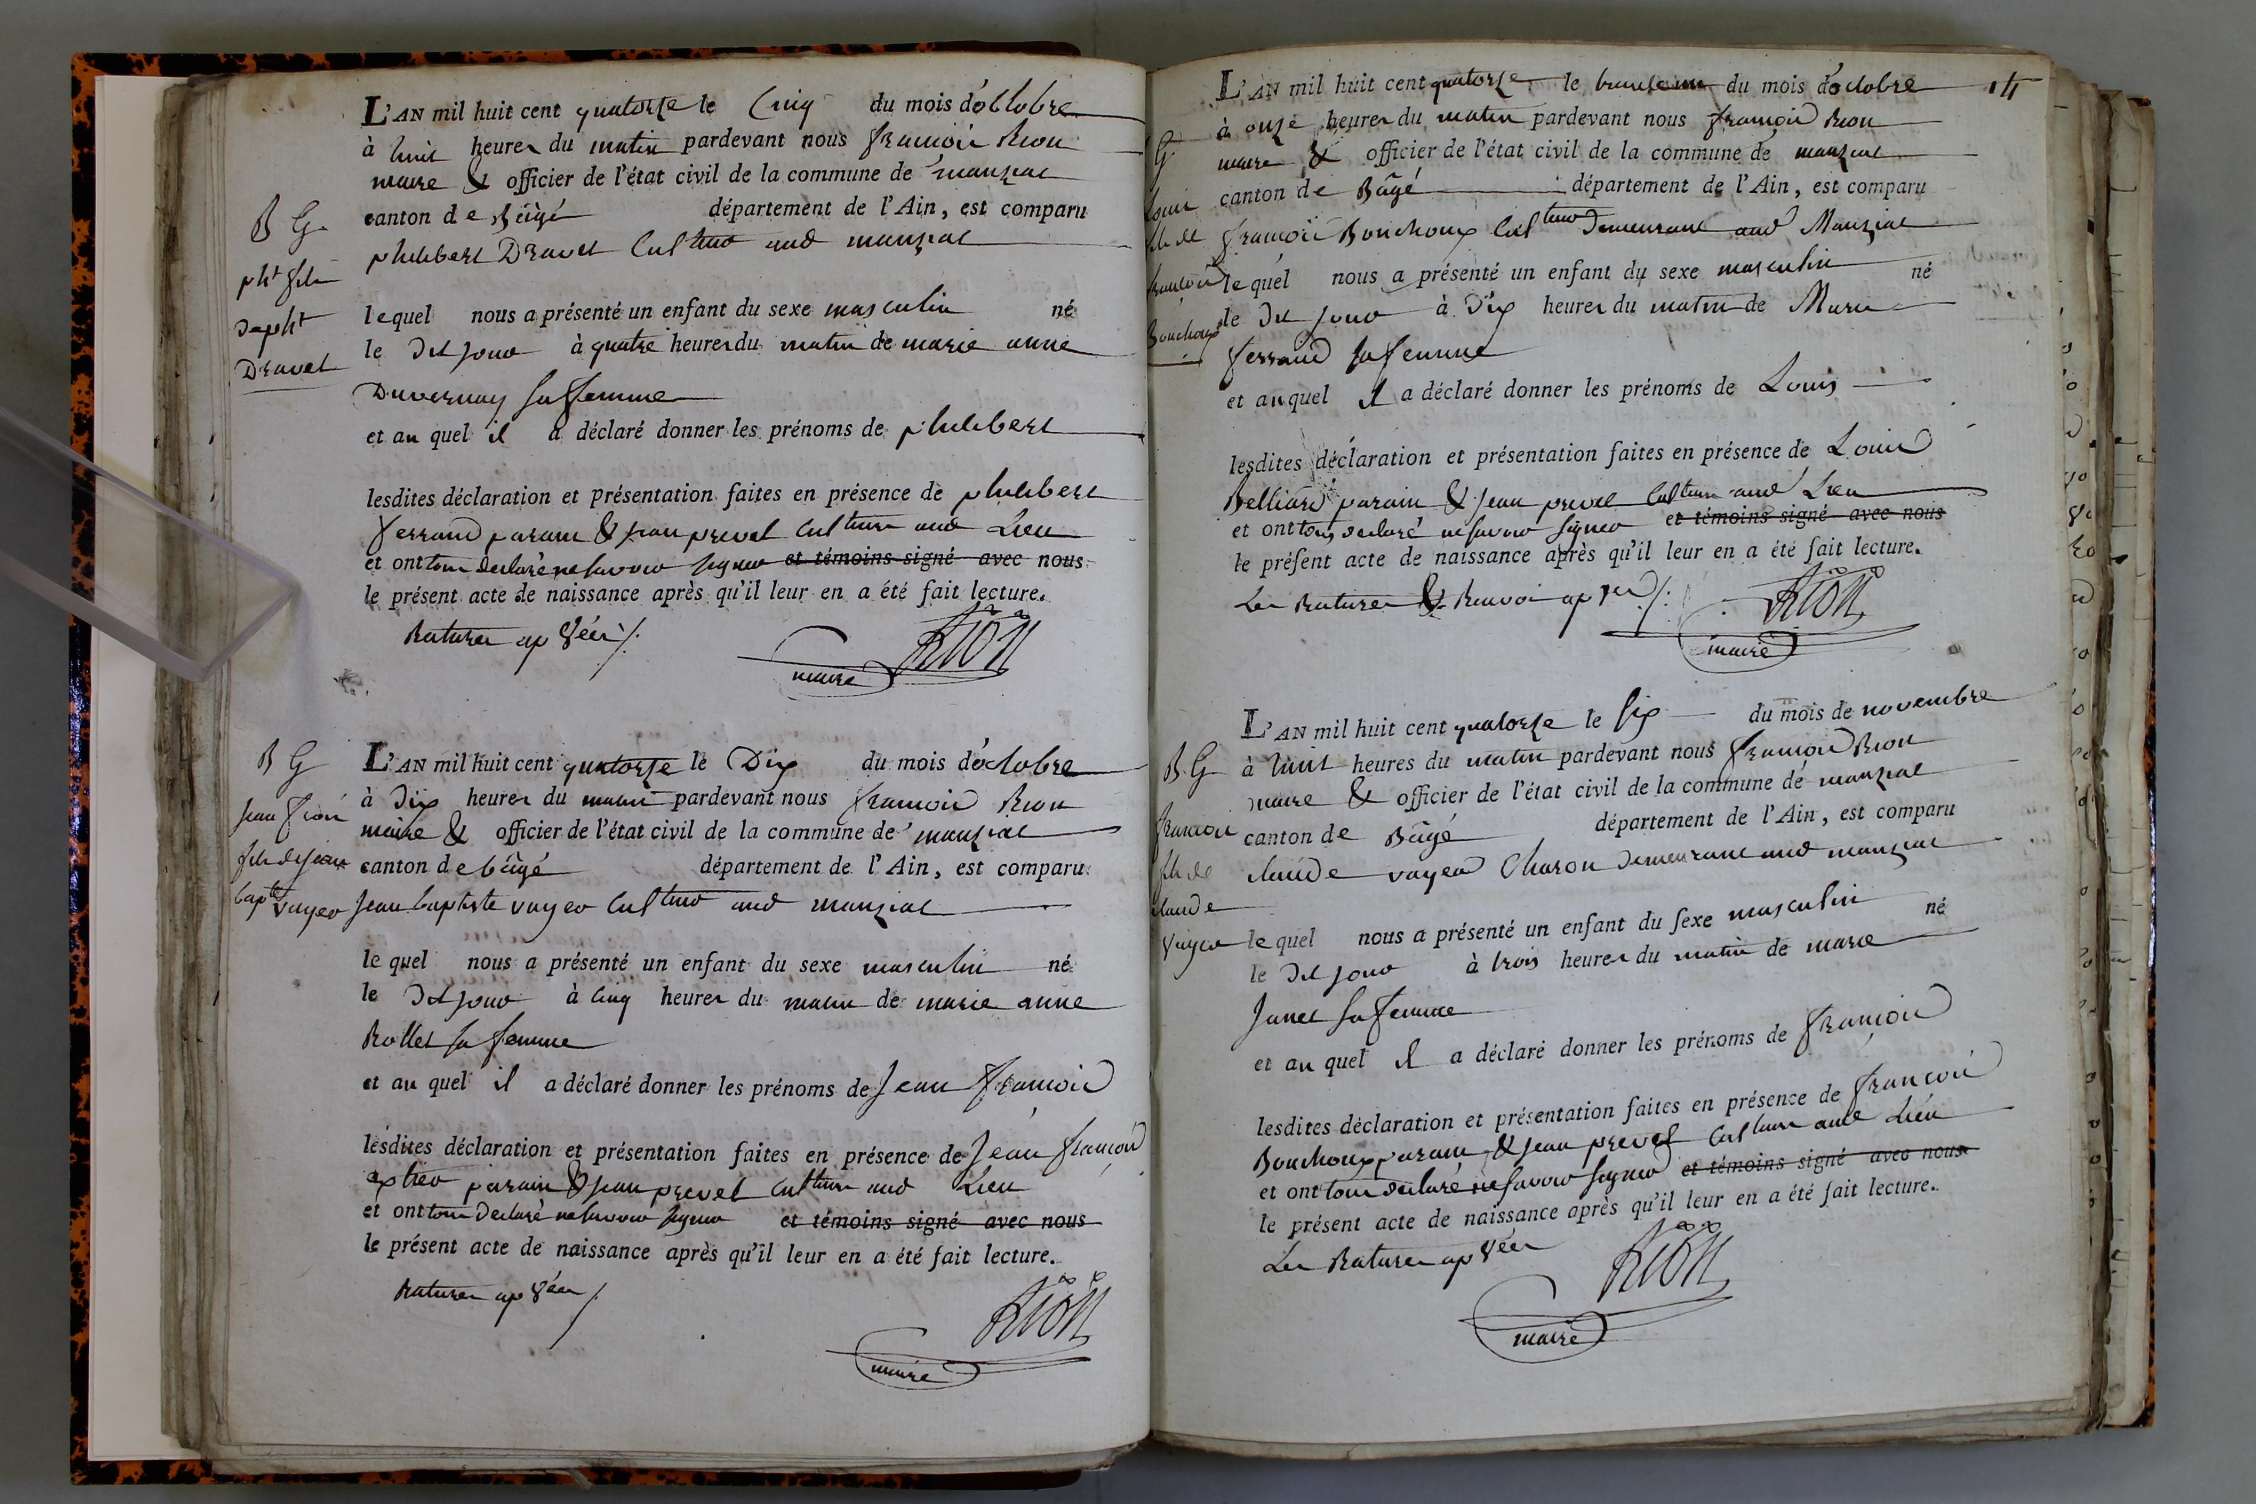 L'AN mil huit cent quatorze le Cinq du mois d'octobre
à huit heures du matin pardevant nous françois Rion
maire & officier de l'état civil de la commune de manziat
canton de Bâgé département de l'Ain, est comparu
B G
philibert Dravet Cultiv.r aud manziat
ph.t fils
de ph.t
Dravet
lequel nous a présenté un enfant du sexe masculin né
le dit jour à quatre heures du matin de marie anne
Duvernay sa femme
et au quel il a déclaré donner les prénoms de philibert
lesdites déclaration et présentation faites en présence de philibert
ferrand parain & jean prevel Cult.rs aud Lieu
et ont tous declaré ne savoir signer et témoins signé avec nous
le présent acte de naissance après qu'il leur en a été fait lecture.
Ratures ap.vées
Rion
maire
B G
jean fran.s
fils de jean
bap.te voyer
L'AN mil huit cent quatorze le Dix du mois d'octobre
à dix heures du matin pardevant nous françois Rion
maire & officier de l'état civil de la commune de manziat
canton de bâgé département de l'Ain, est comparu
jean baptiste voyer Cultiv.r aud manziat
le quel nous a présenté un enfant du sexe masculin né
le dit jour à cinq heures du matin de marie anne
Rollet sa femme
et au quel il a déclaré donner les prénoms de Jean françois
lesdites déclaration et présentation faites en présence de Jean françois
parain & jean prevel Cult.rs aud Lieu
et ont tous declaré ne savoir signer et témoins signé avec nous
le présent acte de naissance après qu'il leur en a été fait lecture.
Ratures ap.vées
Rion
maire
14
L'AN mil huit cent quatorze le trente un du mois d'octobre
à onze heures du matin pardevant nous françois Rion
maire & officier de l'état civil de la commune de manziat
canton de Bâgé département de l'Ain, est comparu
françois Bouchoux Cultiv.r demeurant aud Manziat
G
Louis
fils de
françois
Bouchoux
le quel nous a présenté un enfant du sexe masculin né
le dit jour à dix heures du matin de Marie
ferrand sa femme
et au quel il a déclaré donner les prénoms de Louis
lesdites déclaration et présentation faites en présence de Louis
Belliard parain & jean prevel Cult.rs aud Lieu
et ont tous declaré ne savoir signer et témoins signé avec nous
le présent acte de naissance après qu'il leur en a été fait lecture.
Les Ratures & Renvoi ap.vés
Rion
maire
L'AN mil huit cent quatorze le six du mois de novembre
à huit heures du matin pardevant nous françois Rion
maire & officier de l'état civil de la commune de manziat
canton de Bâgé département de l'Ain, est comparu
claude voyer Charon demeurant aud manziat
B G
françois
fils de
claude
Voyer
le quel nous a présenté un enfant du sexe masculin né
le dit jour à trois heures du matin de marie
Janet sa femme
et au quel il a déclaré donner les prénoms de françois
lesdites déclaration et présentation faites en présence de françois
Bouchoux parain & jean prevel Cult.rs aud Lieu
et ont tous declaré ne savoir signer et témoins signé avec nous
le présent acte de naissance après qu'il leur en a été fait lecture.
Les Ratures ap.vées
Rion
maire